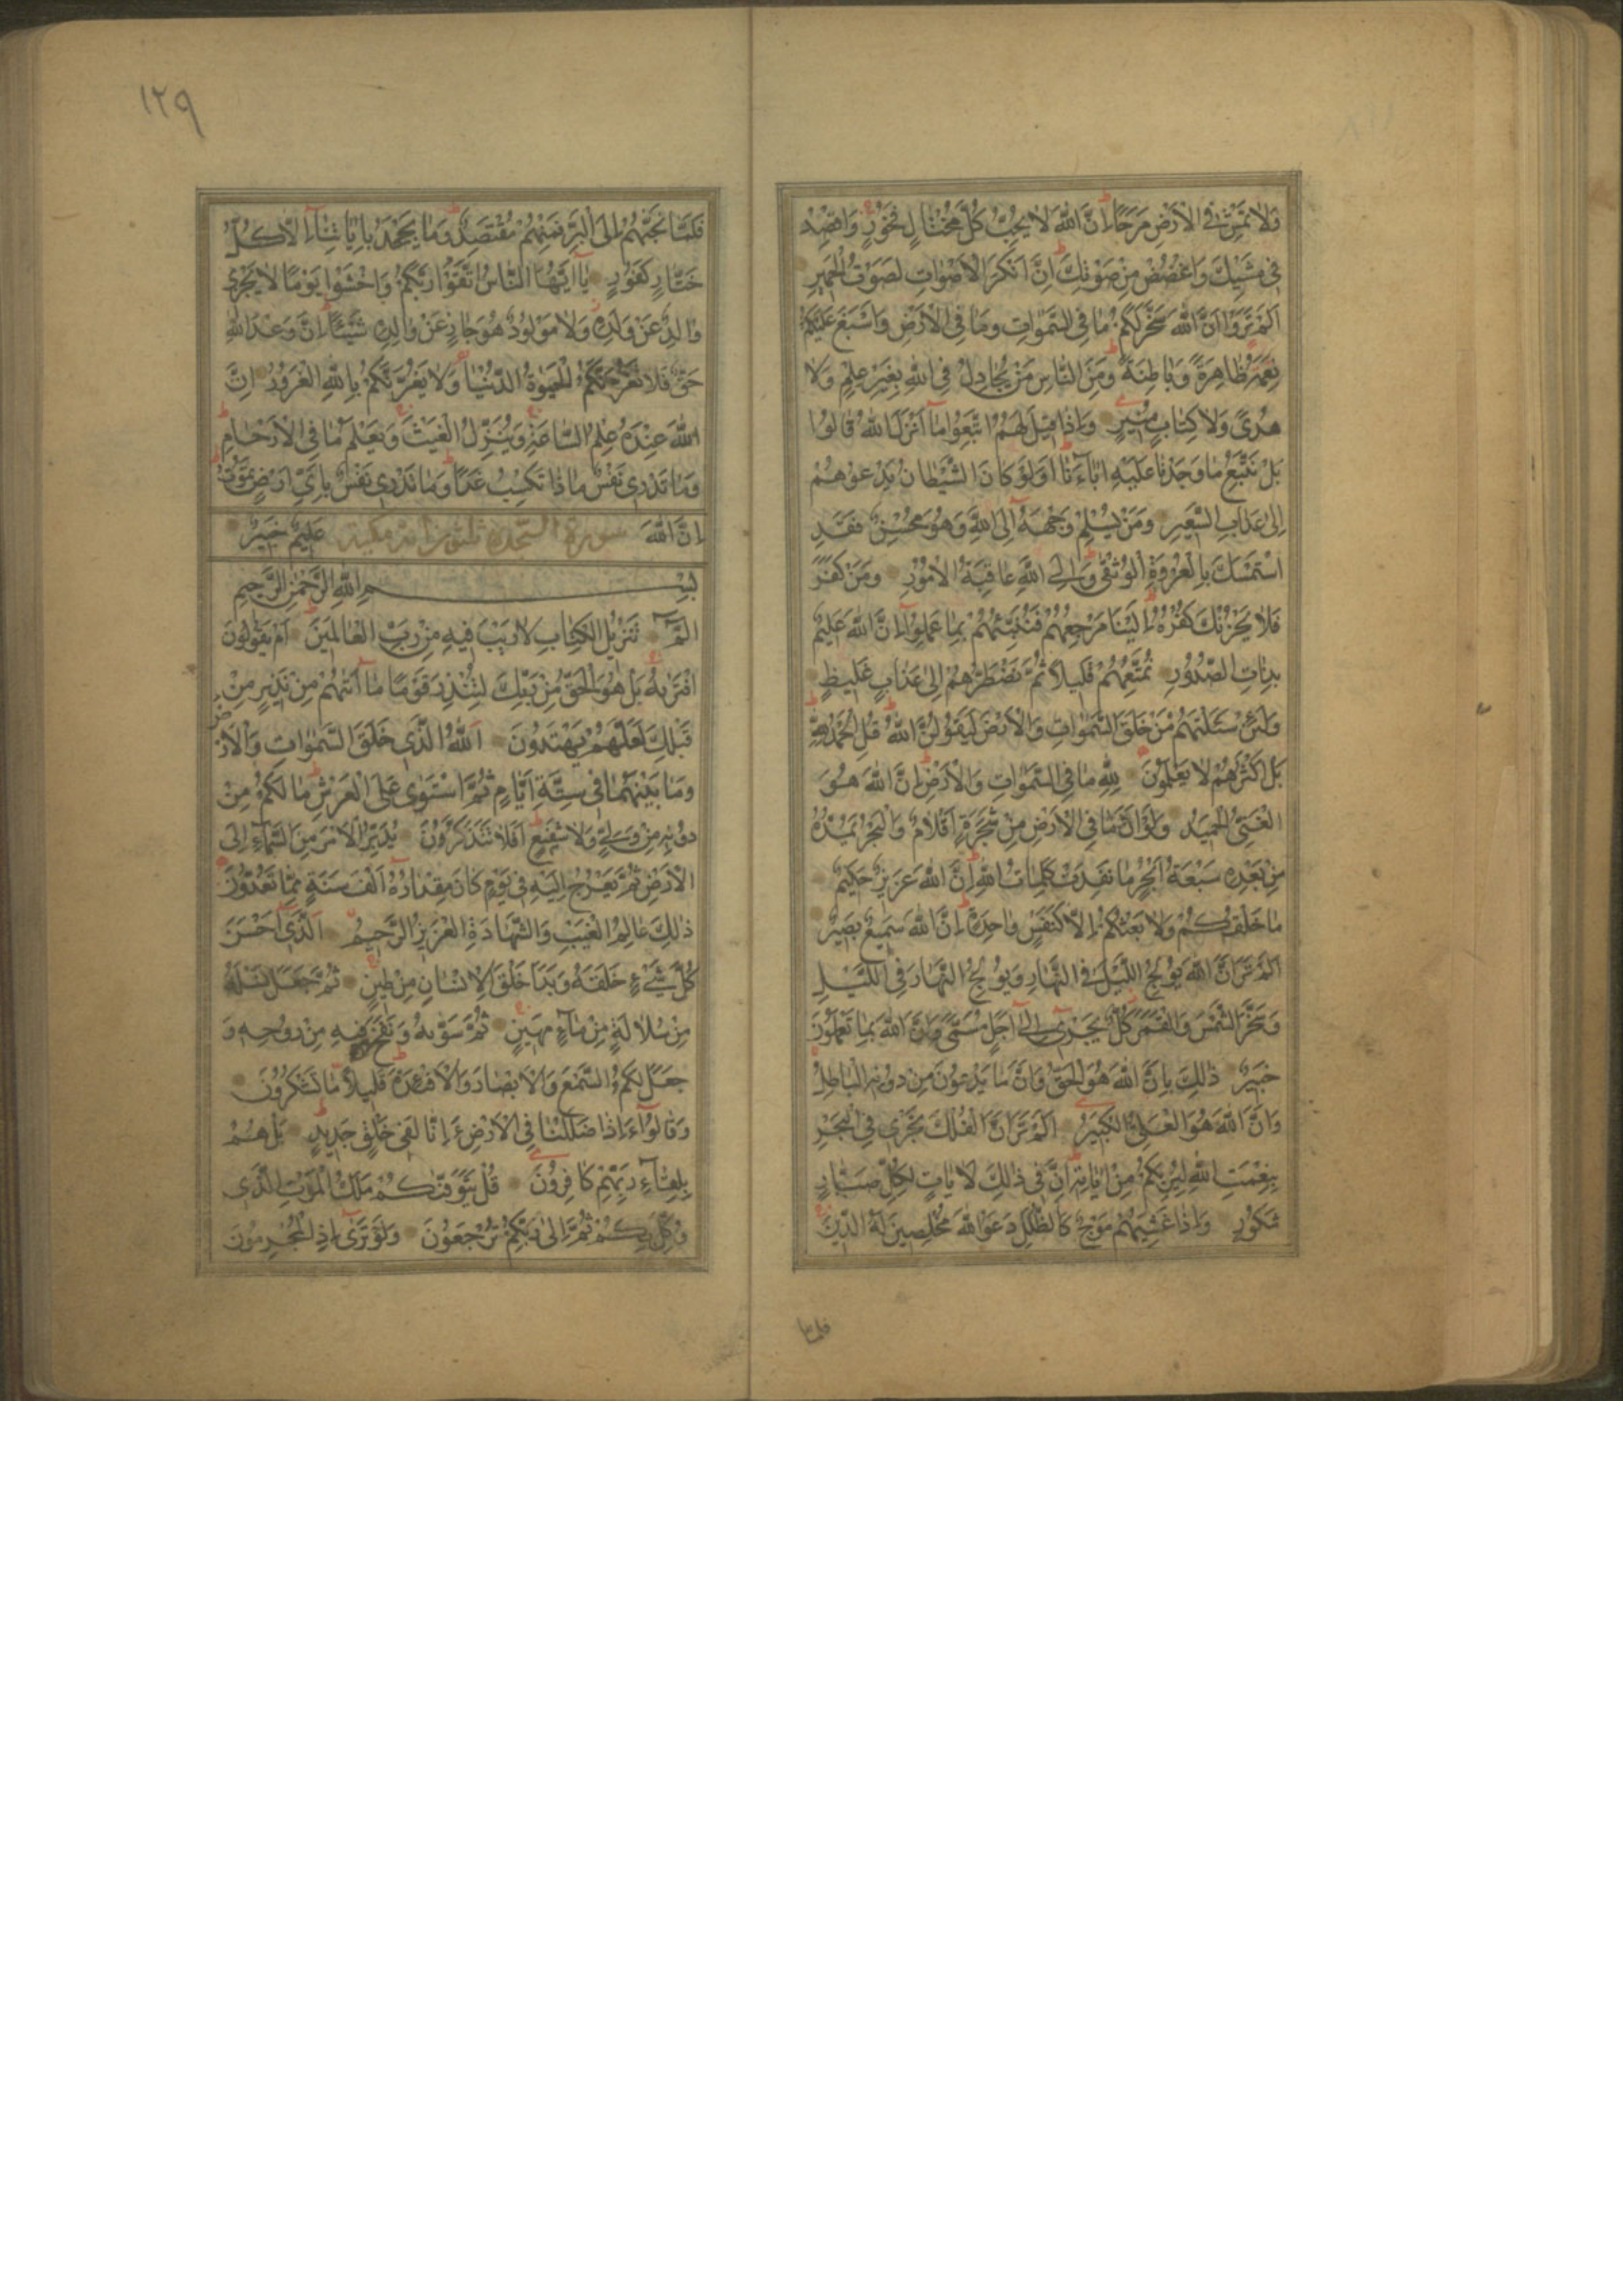 وَلَا تَمْشِ فِي الْأَرْضِ مَرَحًا إِنَّ اللَّهَ لَا يُحِبُّ كُلَّ مُخْتَالٍ فَخُورٍ وَاقْصِدْ
فِي مَشْيِكَ وَاغْضُضْ مِنْ صَوْتِكَ إِنَّ أَنْكَرَ الْأَصْوَاتِ لَصَوْتُ الْحَمِيرِ
أَلَمْ تَرَوْا أَنَّ اللَّهَ سَخَّرَ لَكُمْ مَا فِي السَّمٰوَاتِ وَمَا فِي الْأَرْضِ وَأَسْبَغَ عَلَيْكُمْ
نِعَمَهُ ظَاهِرَةً وَبَاطِنَةً وَمِنَ النَّاسِ مَنْ يُجَادِلُ فِي اللَّهِ بِغَيْرِ عِلْمٍ وَلَا
هُدًى وَلَا كِتَابٍ مُنِيرٍ وَإِذَا قِيلَ لَهُمُ اتَّبِعُوا مَا أَنْزَلَ اللَّهُ قَالُوا
بَلْ نَتَّبِعُ مَا وَجَدْنَا عَلَيْهِ آبَاءَنَا أَوَلَوْ كَانَ الشَّيْطَانُ يَدْعُوهُمْ
إِلَى عَذَابِ السَّعِيرِ وَمَنْ يُسْلِمْ وَجْهَهُ إِلَى اللَّهِ وَهُوَ مُحْسِنٌ فَقَدِ
اسْتَمْسَكَ بِالْعُرْوَةِ الْوُثْقَى وَإِلَى اللَّهِ عَاقِبَةُ الْأُمُورِ وَمَنْ كَفَرَ
فَلَا يَحْزُنْكَ كُفْرُهُ إِلَيْنَا مَرْجِعُهُمْ فَنُنَبِّئُهُمْ بِمَا عَمِلُوا إِنَّ اللَّهَ عَلِيمٌ
بِذَاتِ الصُّدُورِ نُمَتِّعُهُمْ قَلِيلًا ثُمَّ نَضْطَرُّهُمْ إِلَى عَذَابٍ غَلِيظٍ
وَلَئِنْ سَئَلْتَهُمْ مَنْ خَلَقَ السَّمٰوَاتِ وَالْأَرْضَ لَيَقُولُنَّ اللَّهُ قُلِ الْحَمْدُ لِلَّهِ
بَلْ أَكْثَرُهُمْ لَا يَعْلَمُونَ لِلَّهِ مَا فِي السَّمٰوَاتِ وَالْأَرْضِ إِنَّ اللَّهَ هُوَ
الْغَنِيُّ الْحَمِيدُ وَلَوْ أَنَّ مَا فِي الْأَرْضِ مِنْ شَجَرَةٍ أَقْلَامٌ وَالْبَحْرُ يَمُدُّهُ
مِنْ بَعْدِهِ سَبْعَةُ أَبْحُرٍ مَا نَفِدَتْ كَلِمَاتُ اللَّهِ إِنَّ اللَّهَ عَزِيزٌ حَكِيمٌ
مَا خَلْقُكُمْ وَلَا بَعْثُكُمْ إِلَّا كَنَفْسٍ وَاحِدَةٍ إِنَّ اللَّهَ سَمِيعٌ بَصِيرٌ
أَلَمْ تَرَ أَنَّ اللَّهَ يُولِجُ اللَّيْلَ فِي النَّهَارِ وَيُولِجُ النَّهَارَ فِي اللَّيْلِ
وَسَخَّرَ الشَّمْسَ وَالْقَمَرَ كُلٌّ يَجْرِي إِلَى أَجَلٍ مُسَمًّى وَأَنَّ اللَّهَ بِمَا تَعْمَلُونَ
خَبِيرٌ ذٰلِكَ بِأَنَّ اللَّهَ هُوَ الْحَقُّ وَأَنَّ مَا يَدْعُونَ مِنْ دُونِهِ الْبَاطِلُ
وَأَنَّ اللَّهَ هُوَ الْعَلِيُّ الْكَبِيرُ أَلَمْ تَرَ أَنَّ الْفُلْكَ تَجْرِي فِي الْبَحْرِ
بِنِعْمَتِ اللَّهِ لِيُرِيَكُمْ مِنْ آيَاتِهِ إِنَّ فِي ذٰلِكَ لَآيَاتٍ لِكُلِّ صَبَّارٍ
شَكُورٍ وَإِذَا غَشِيَهُمْ مَوْجٌ كَالظُّلَلِ دَعَوُا اللَّهَ مُخْلِصِينَ لَهُ الدِّينَ
فلما
١٢٩
فَلَمَّا نَجّٰهُمْ إِلَى الْبَرِّ فَمِنْهُمْ مُقْتَصِدٌ وَمَا يَجْحَدُ بِآيَاتِنَا إِلَّا كُلُّ
خَتَّارٍ كَفُورٍ يَا أَيُّهَا النَّاسُ اتَّقُوا رَبَّكُمْ وَاخْشَوْا يَوْمًا لَا يَجْزِي
وَالِدٌ عَنْ وَلَدِهِ وَلَا مَوْلُودٌ هُوَ جَازٍ عَنْ وَالِدِهِ شَيْئًا إِنَّ وَعْدَ اللَّهِ
حَقٌّ فَلَا تَغُرَّنَّكُمُ الْحَيٰوةُ الدُّنْيَا وَلَا يَغُرَّنَّكُمْ بِاللَّهِ الْغَرُورُ إِنَّ
اللَّهَ عِنْدَهُ عِلْمُ السَّاعَةِ وَيُنَزِّلُ الْغَيْثَ وَيَعْلَمُ مَا فِي الْأَرْحَامِ
وَمَا تَدْرِي نَفْسٌ مَاذَا تَكْسِبُ غَدًا وَمَا تَدْرِي نَفْسٌ بِأَيِّ أَرْضٍ تَمُوتُ
إِنَّ اللَّهَ سورة السجدة ثلثون آية مكية عَلِيمٌ خَبِيرٌ
بِسْمِ اللَّهِ الرَّحْمٰنِ الرَّحِيمِ
الٓمٓ تَنْزِيلُ الْكِتَابِ لَا رَيْبَ فِيهِ مِنْ رَبِّ الْعَالَمِينَ أَمْ يَقُولُونَ
افْتَرٰيهُ بَلْ هُوَ الْحَقُّ مِنْ رَبِّكَ لِتُنْذِرَ قَوْمًا مَا أَتٰهُمْ مِنْ نَذِيرٍ مِنْ
قَبْلِكَ لَعَلَّهُمْ يَهْتَدُونَ اَللَّهُ الَّذِي خَلَقَ السَّمٰوَاتِ وَالْأَرْضَ
وَمَا بَيْنَهُمَا فِي سِتَّةِ أَيَّامٍ ثُمَّ اسْتَوٰى عَلَى الْعَرْشِ مَا لَكُمْ مِنْ
دُونِهِ مِنْ وَلِيٍّ وَلَا شَفِيعٍ أَفَلَا تَتَذَكَّرُونَ يُدَبِّرُ الْأَمْرَ مِنَ السَّمَاءِ إِلَى
الْأَرْضِ ثُمَّ يَعْرُجُ إِلَيْهِ فِي يَوْمٍ كَانَ مِقْدَارُهُ أَلْفَ سَنَةٍ مِمَّا تَعُدُّونَ
ذٰلِكَ عَالِمُ الْغَيْبِ وَالشَّهَادَةِ الْعَزِيزُ الرَّحِيمُ اَلَّذِي أَحْسَنَ
كُلَّ شَيْءٍ خَلَقَهُ وَبَدَأَ خَلْقَ الْإِنْسَانِ مِنْ طِينٍ ثُمَّ جَعَلَ نَسْلَهُ
مِنْ سُلَالَةٍ مِنْ مَاءٍ مَهِينٍ ثُمَّ سَوّٰيهُ وَنَفَخَ فِيهِ مِنْ رُوحِهِ وَ
جَعَلَ لَكُمُ السَّمْعَ وَالْأَبْصَارَ وَالْأَفْئِدَةَ قَلِيلًا مَا تَشْكُرُونَ
وَقَالُوا ءَإِذَا ضَلَلْنَا فِي الْأَرْضِ ءَإِنَّا لَفِي خَلْقٍ جَدِيدٍ بَلْ هُمْ
بِلِقَاءِ رَبِّهِمْ كَافِرُونَ قُلْ يَتَوَفّٰكُمْ مَلَكُ الْمَوْتِ الَّذِي
وُكِّلَ بِكُمْ ثُمَّ إِلَى رَبِّكُمْ تُرْجَعُونَ وَلَوْ تَرٰى إِذِ الْمُجْرِمُونَ